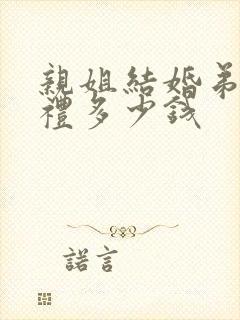 親姐結婚弟
禮多少錢
諾言